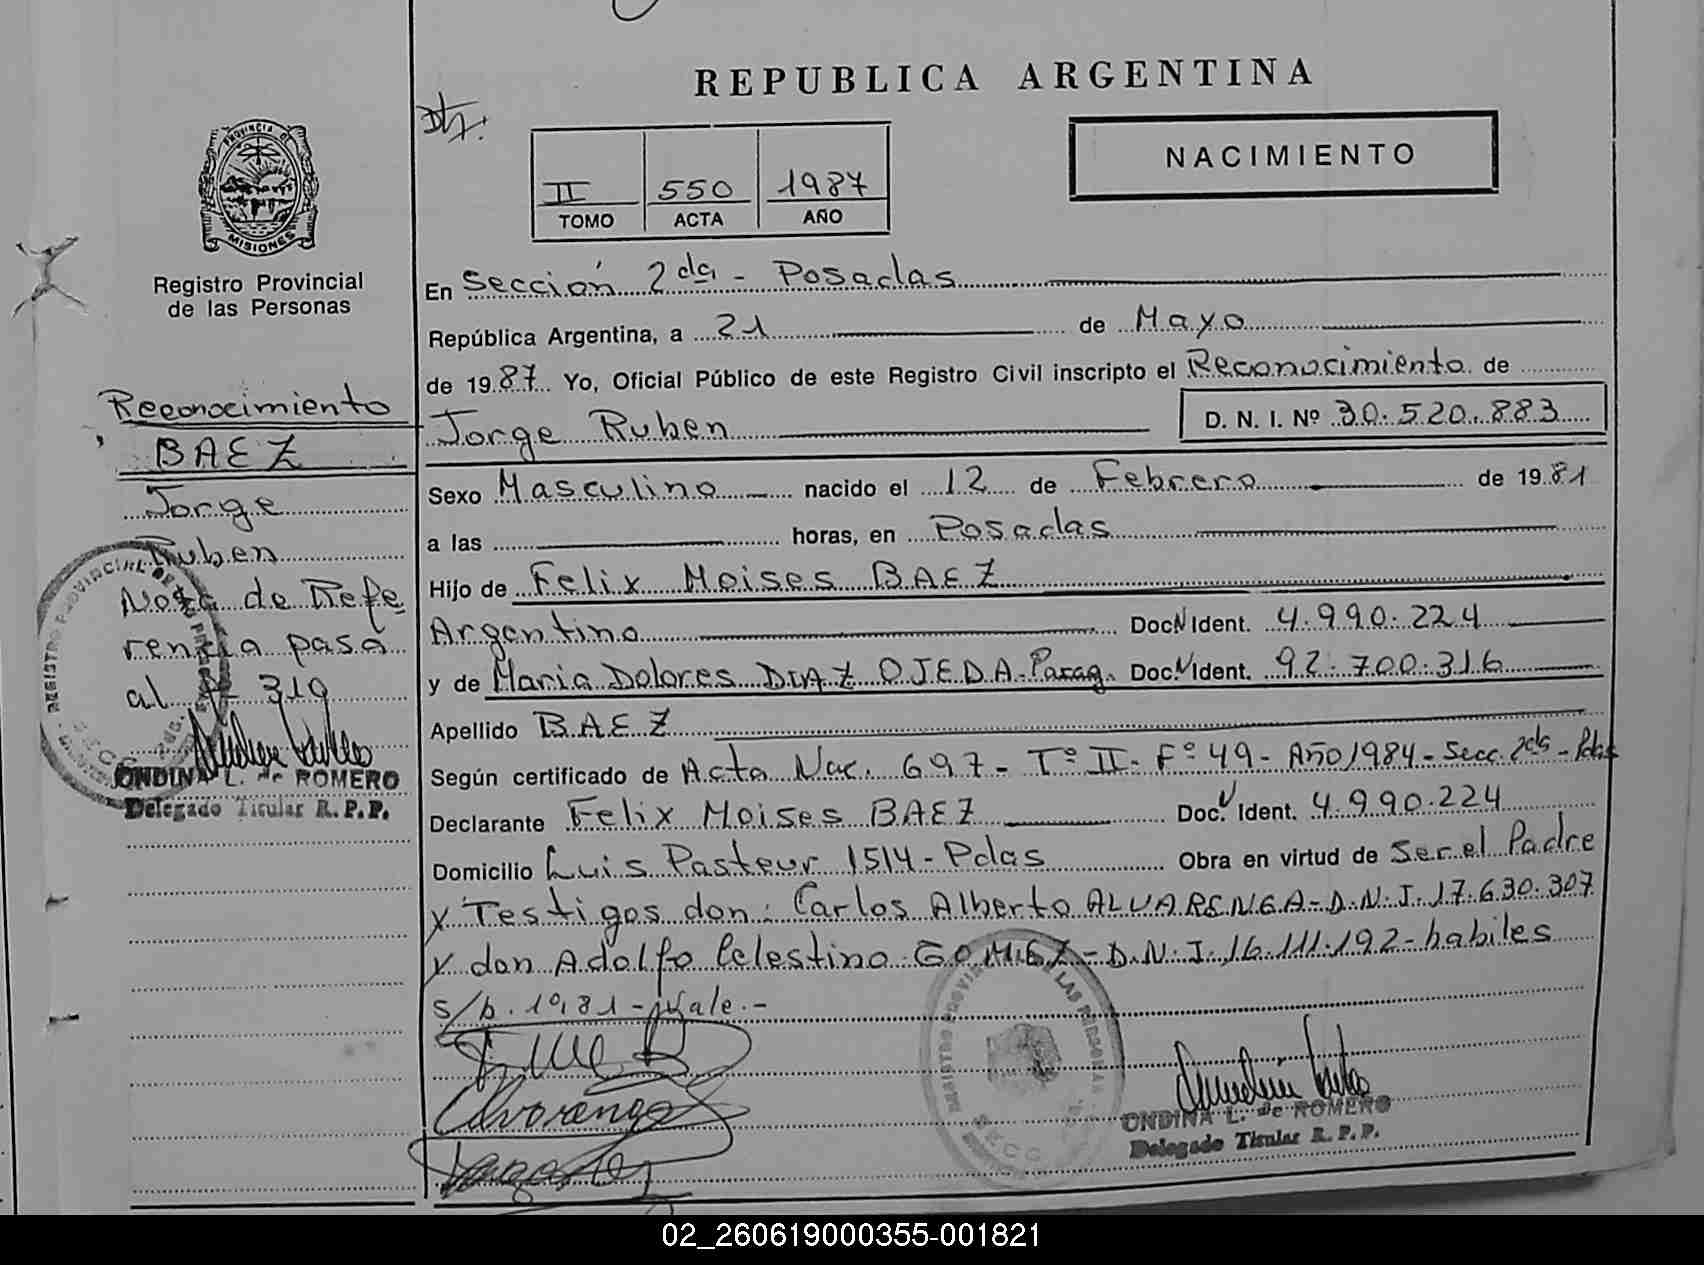 REPUBLICA ARGENTINA
NACIMIENTO
II 550 1987
TOMO ACTA AÑO
PROVINCIA DE
MISIONES
Registro Provincial
de las Personas
Reconocimiento
BAEZ
Jorge
Ruben
Nota de Refe
rencia pasa
al Nº 319
ONDINA L. de ROMERO
Delegado Titular R. P. P.
En Sección 2da - Posadas
República Argentina, a 21 de Mayo
de 1987 Yo, Oficial Público de este Registro Civil inscripto el Reconocimiento de
Jorge Ruben D. N. I. Nº 30.520.883
Sexo Masculino nacido el 12 de Febrero de 1981
a las horas, en Posadas
Hijo de Felix Moises BAEZ
Argentino Doc. N Ident. 4.990.224
y de Maria Dolores DIAZ OJEDA-Parag. Doc. N Ident. 92.700.316
Apellido BAEZ
Según certificado de Acta Nac. 697- Tº II- Fº 49- Año 1984- Secc. 2da - Pdas
Declarante Felix Moises BAEZ Doc. Ident. 4.990.224
Domicilio Luis Pasteur 1514- Pdas Obra en virtud de Ser el Padre
y Testigos don: Carlos Alberto ALVARENGA- D.N.I. 17.630.307
y don Adolfo Celestino GOMEZ- D.N.I. 16.111.192- habiles
s/b. 10,81 - Vale.-
ONDINA L. de ROMERO
Delegado Titular R. P. P.
02_260619000355-001821